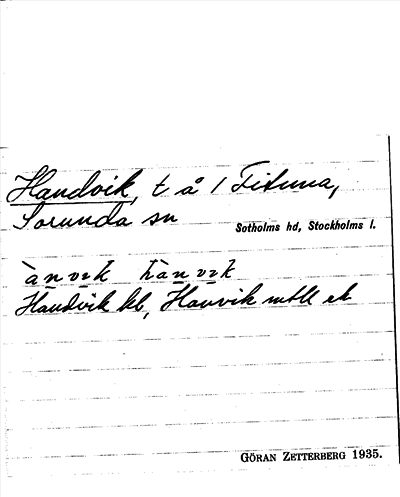 Handvik, t å / Fituna,
Sorunda sn
Sotholms hd, Stockholms l.
ànvɩk hànvɩk
Handvik kb, Hanvik mtll ek
GÖRAN ZETTERBERG 1935.